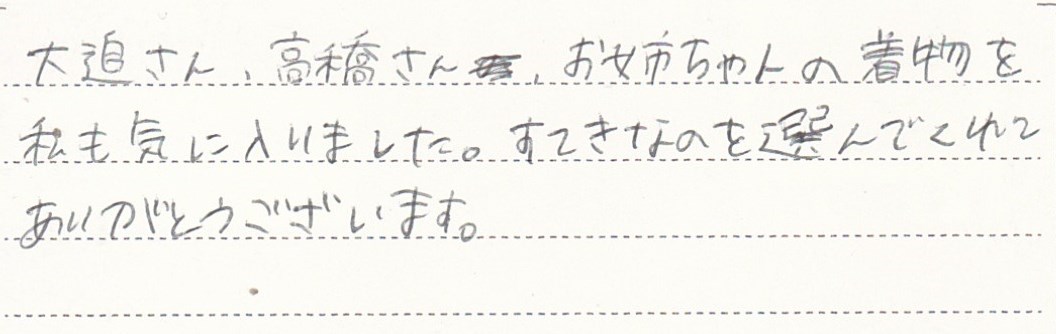 大迫さん、高橋さん、お姉ちゃんの着物を
私も気に入りました。すてきなのを選んでくれて
ありがとうございます。